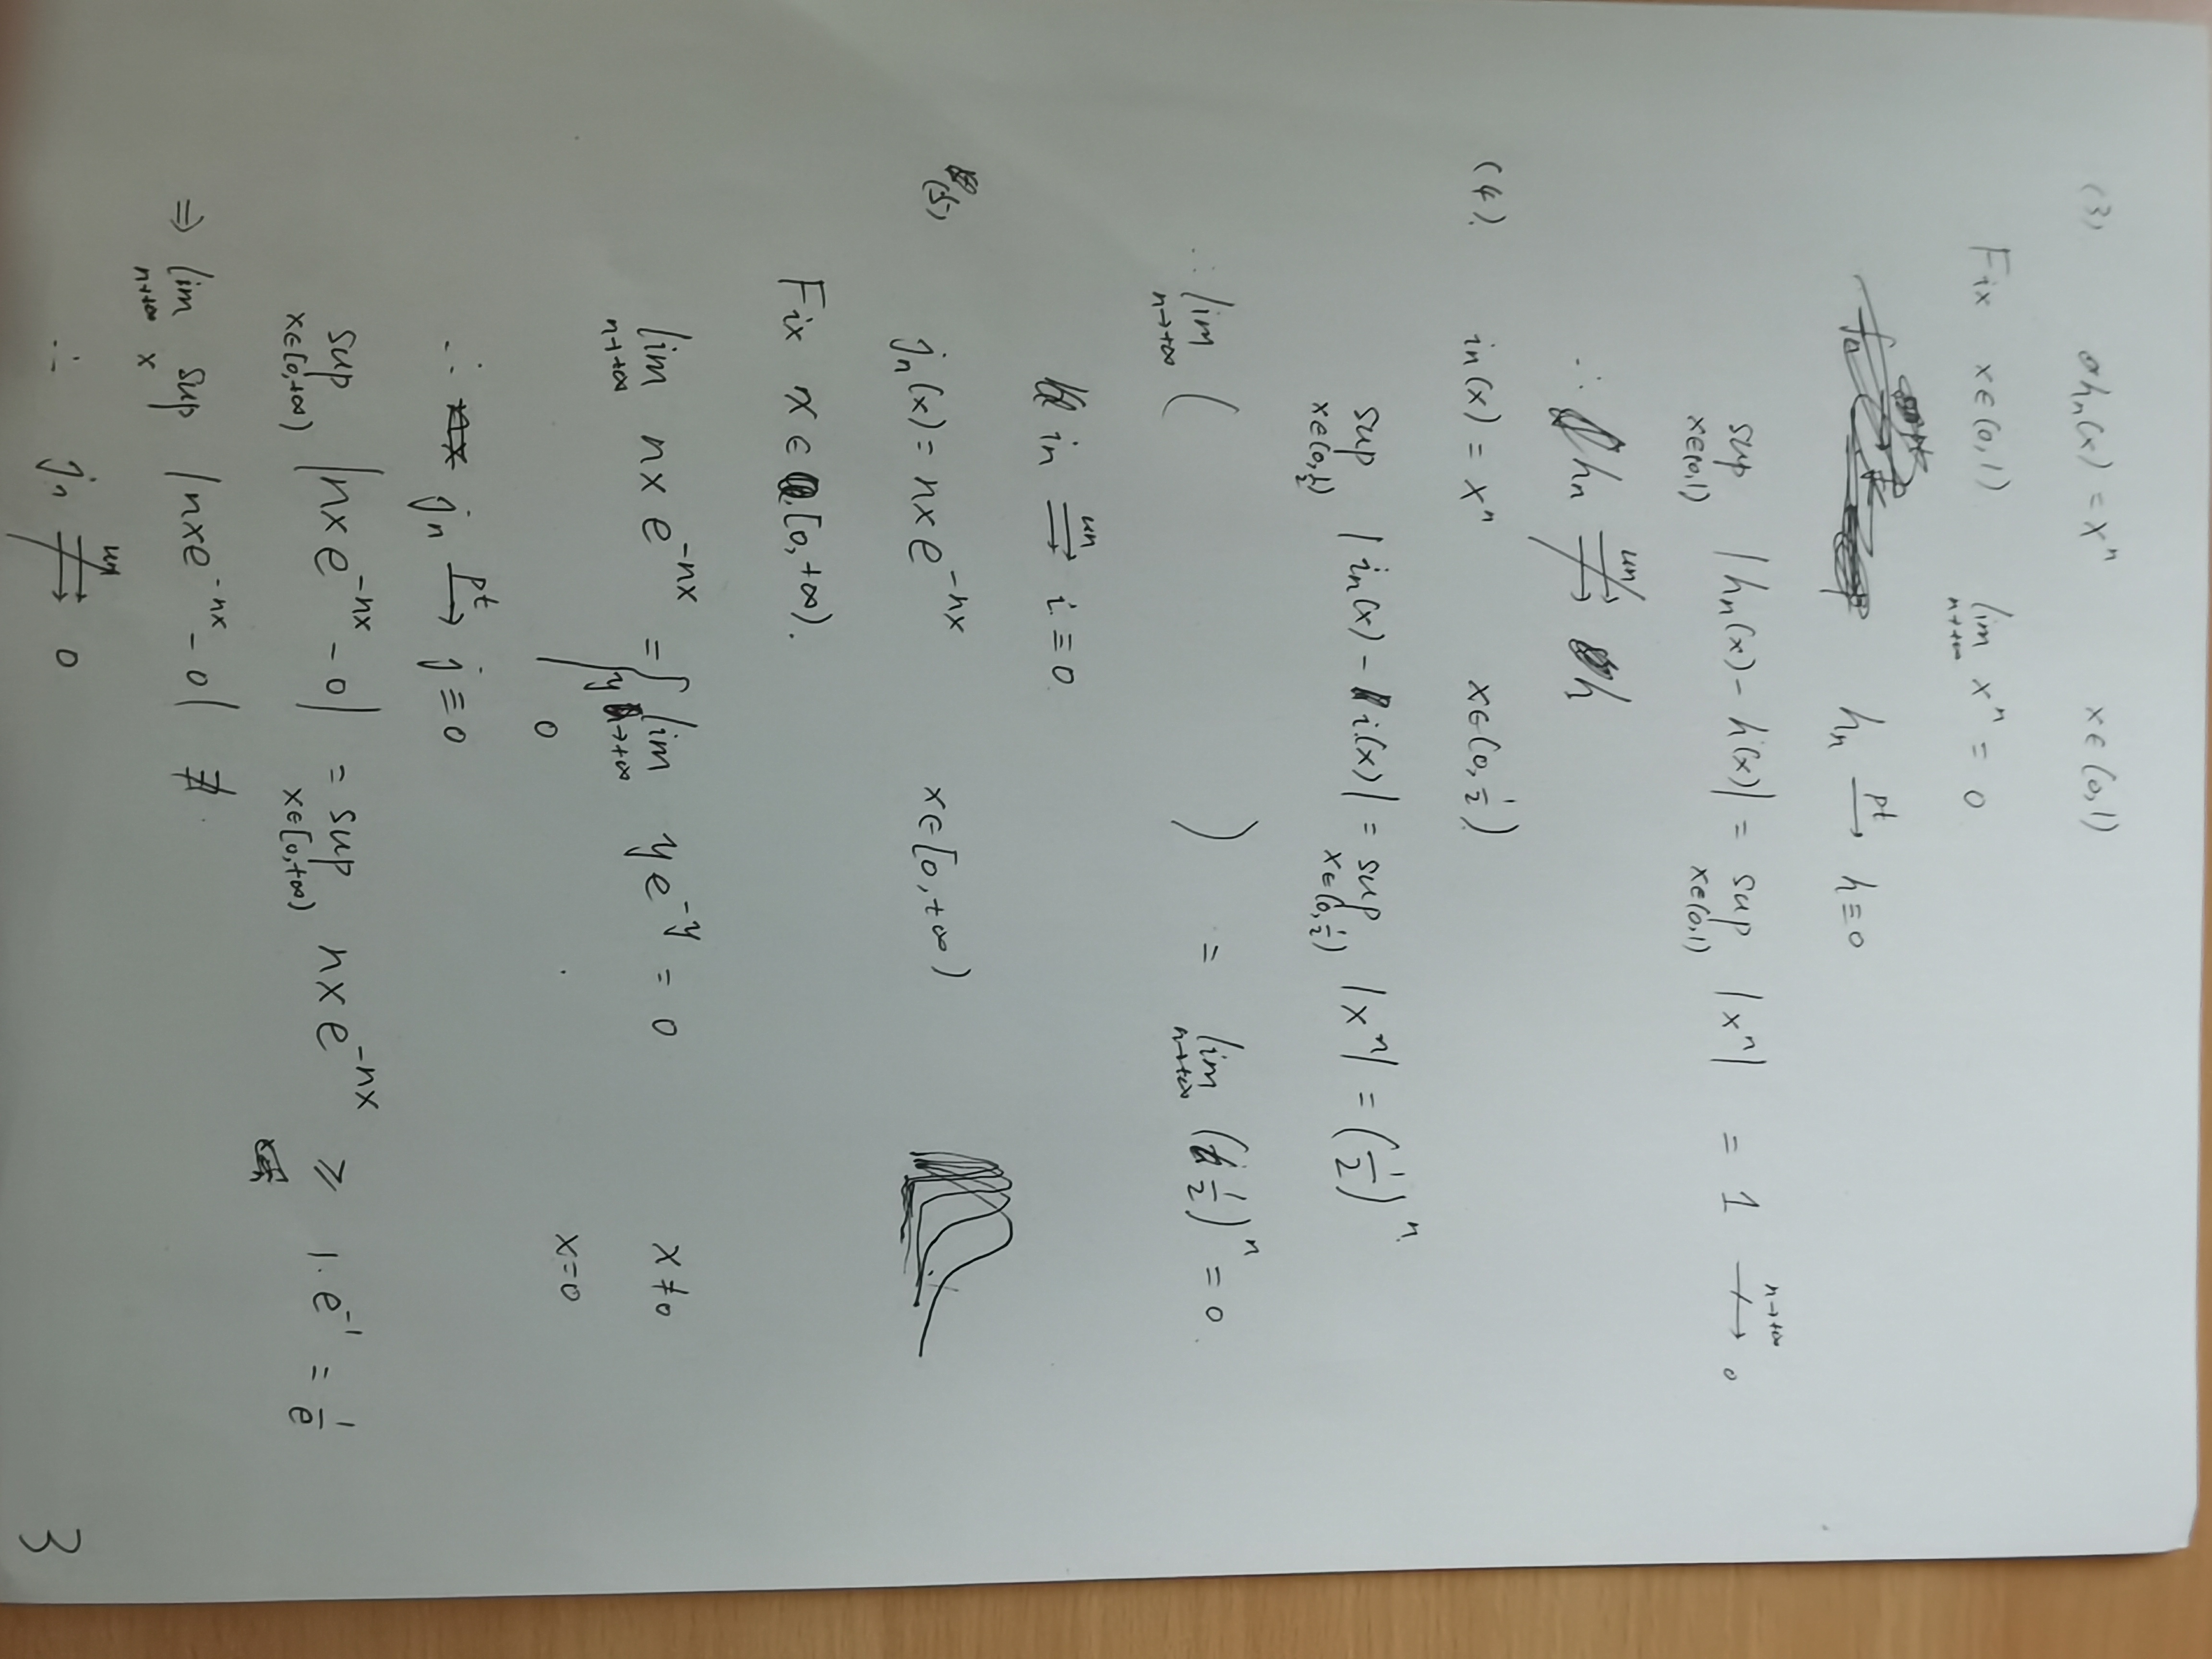 (3) hₙ(x) = xⁿ x∈(0,1)
Fix x∈(0,1) lim n→+∞ xⁿ = 0
hₙ →pt h≡0
sup x∈(0,1) |hₙ(x) - h(x)| = sup x∈(0,1) |xⁿ| = 1 ↛ n→+∞ 0
∴ hₙ un ⇉̸ h
(4). iₙ(x) = xⁿ x∈(0, 1/2)
sup x∈(0,1/2) |iₙ(x) - i(x)| = sup x∈(0,1/2) |xⁿ| = (1/2)ⁿ
∴ lim n→+∞ ( ) = lim n→+∞ (1/2)ⁿ = 0.
iₙ un ⇉ i ≡ 0.
(5) jₙ(x) = nx e^{-nx} x∈[0,+∞)
Fix x∈[0,+∞).
lim n→+∞ nx e^{-nx} = { lim y→+∞ y e^{-y} = 0 x≠0
0 x=0
∴ jₙ →pt j≡0
sup x∈[0,+∞) |nx e^{-nx} - 0| = sup x∈[0,+∞) nx e^{-nx} ⩾ 1·e^{-1} = 1/e
⇒ lim n→+∞ sup x |nxe^{-nx} - 0|
∴ jₙ un ⇉̸ 0
3